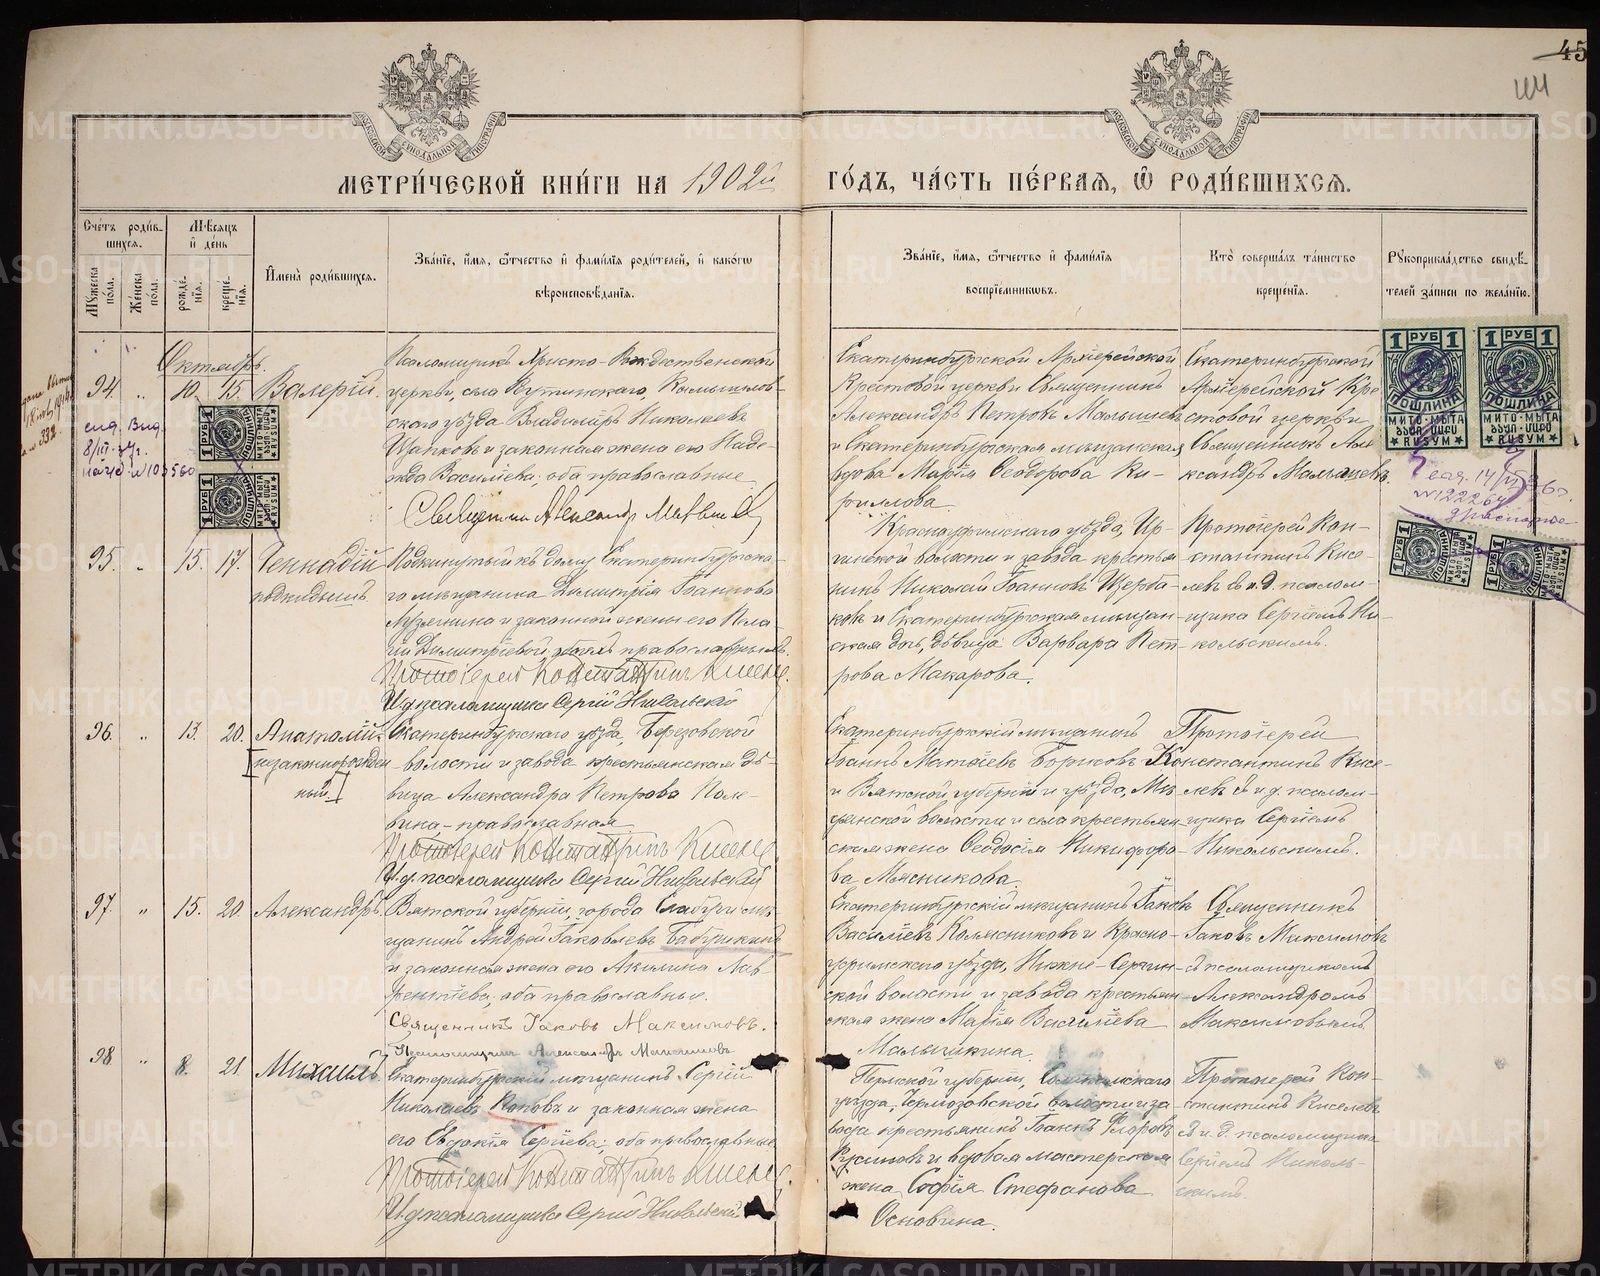 45
МЕТРИ́ЧЕСКОЙ КНИ́ГИ НА 1902й ГО́ДЪ, ЧА́СТЬ ПЕ́РВАЯ, Ѿ РОДИ́ВШИХСЯ.
Сче́тъ роди́в-
шихся.
Мꙋжеска по́ла.
Же́нска по́ла.
Мѣ́сяцъ и де́нь
рожде́-
нїя.
креще́-
нїя.
Имена̀ роди́вшихся.
Зва́нїе, и́мя, ѻ́тчество и фами́лїя роди́телей, и како́гѡ
вѣроисповѣ́данїя.
Зва́нїе, и́мя, ѻ́тчество и фами́лїя
воспрїе́мникѡвъ.
Кто̀ соверша́лъ та́инство
креще́нїя.
Рꙋкоприкла́дство свидѣ́-
телей за́писи по жела́нїю.
Октябрь.
94. " 10. 15. Валерій.
Псаломщикъ Христо-Рождественской
церкви, села Кутинскаго, Камышлов-
скаго уѣзда Владиміръ Николаевъ
Щапковъ и законная жена его Наде-
жда Василіева; оба православные.
Священникъ Александръ
Екатеринбургской Архіерейской
Крестовой церкви Священникъ
Александръ Петровъ Малышевъ
и Екатеринбургская мѣщанская
вдова Марія Ѳеодорова Ки-
риллова.
Екатеринбургской
Архіерейской Кре-
стовой церкви
Священникъ Але-
ксандръ Малышевъ.
1 РУБ 1
ПОШЛИНА
МИТО·МЫТА
RUSUM
1 РУБ 1
ПОШЛИНА
МИТО·МЫТА
RUSUM
95. " 15. 17. Геннадій
подкидышъ
Подкинутый къ дому Екатеринбургска-
го мѣщанина Димитрія Іоаннова
и законной жены его Пела-
гіи Димитріевой, обоихъ православныхъ.
Протоіерей Константинъ Киселевъ.
И.д. псаломщика Сергій Никольскій
Красноуфимскаго уѣзда, Ир-
гинской волости и завода крестья-
нинъ Николай Іоанновъ Щерба-
ковъ и Екатеринбургская мѣщан-
ская дочь, дѣвица Варвара Пет-
рова Макарова.
Протоіерей Кон-
стантинъ Кисе-
левъ съ и.д. псалом-
щика Сергіемъ Ни-
кольскимъ.
96. " 13. 20. Анатолій
[незаконнорожден-
ный]
Екатеринбургскаго уѣзда, Березовской
волости и завода крестьянская дѣ-
вица Александра Петрова Поле-
вина – православная
Протоіерей Константинъ Киселевъ
И.д. псаломщика Сергій Никольскій
Екатеринбургскій мѣщанинъ
Іоаннъ Матѳіевъ Борисовъ
и Вятской губерніи и уѣзда, Мѣ-
дянской волости и села крестьян-
ская жена Ѳеодосія Никифоро-
ва Мясникова.
Протоіерей
Константинъ Кисе-
левъ съ и.д. псалом-
щика Сергіемъ
Никольскимъ.
97. " 15. 20. Александръ.
Вятской губерніи, города Елабуги мѣ-
щанинъ Андрей Іаковлевъ Бабушкинъ
и законная жена его Акилина Лав-
рентіева, оба православные.
Священникъ Іаковъ Максимовъ.
Псаломщикъ Александръ Максимовъ
Екатеринбургскій мѣщанинъ Іаковъ
Василіевъ Колясниковъ и Красно-
уфимскаго уѣзда, Нижне-Сергин-
ской волости и завода крестьян-
ская жена Марія Василіева
Малышкина.
Священникъ
Іаковъ Максимовъ
съ псаломщикомъ
Александромъ
Максимовымъ.
98 " 8. 21. Михаилъ.
Екатеринбургскій мѣщанинъ Сергій
Николаевъ Поповъ и законная жена
его Евдокія Сергіева; оба православные
Протоіерей Константинъ Киселевъ.
И.д. псаломщика Сергій Никольскій
Пермской губерніи, Соликамскаго
уѣзда, Чермозовской волости и за-
вода крестьянинъ Іоаннъ Флоровъ
Русиновъ и вдовая мастерская
жена Софія Стефанова
Основина.
Протоіерей Кон-
стантинъ Киселевъ
съ и.д. псаломщика
Сергіемъ Николь-
скимъ.
METRIKI.GASO-URAL.RU